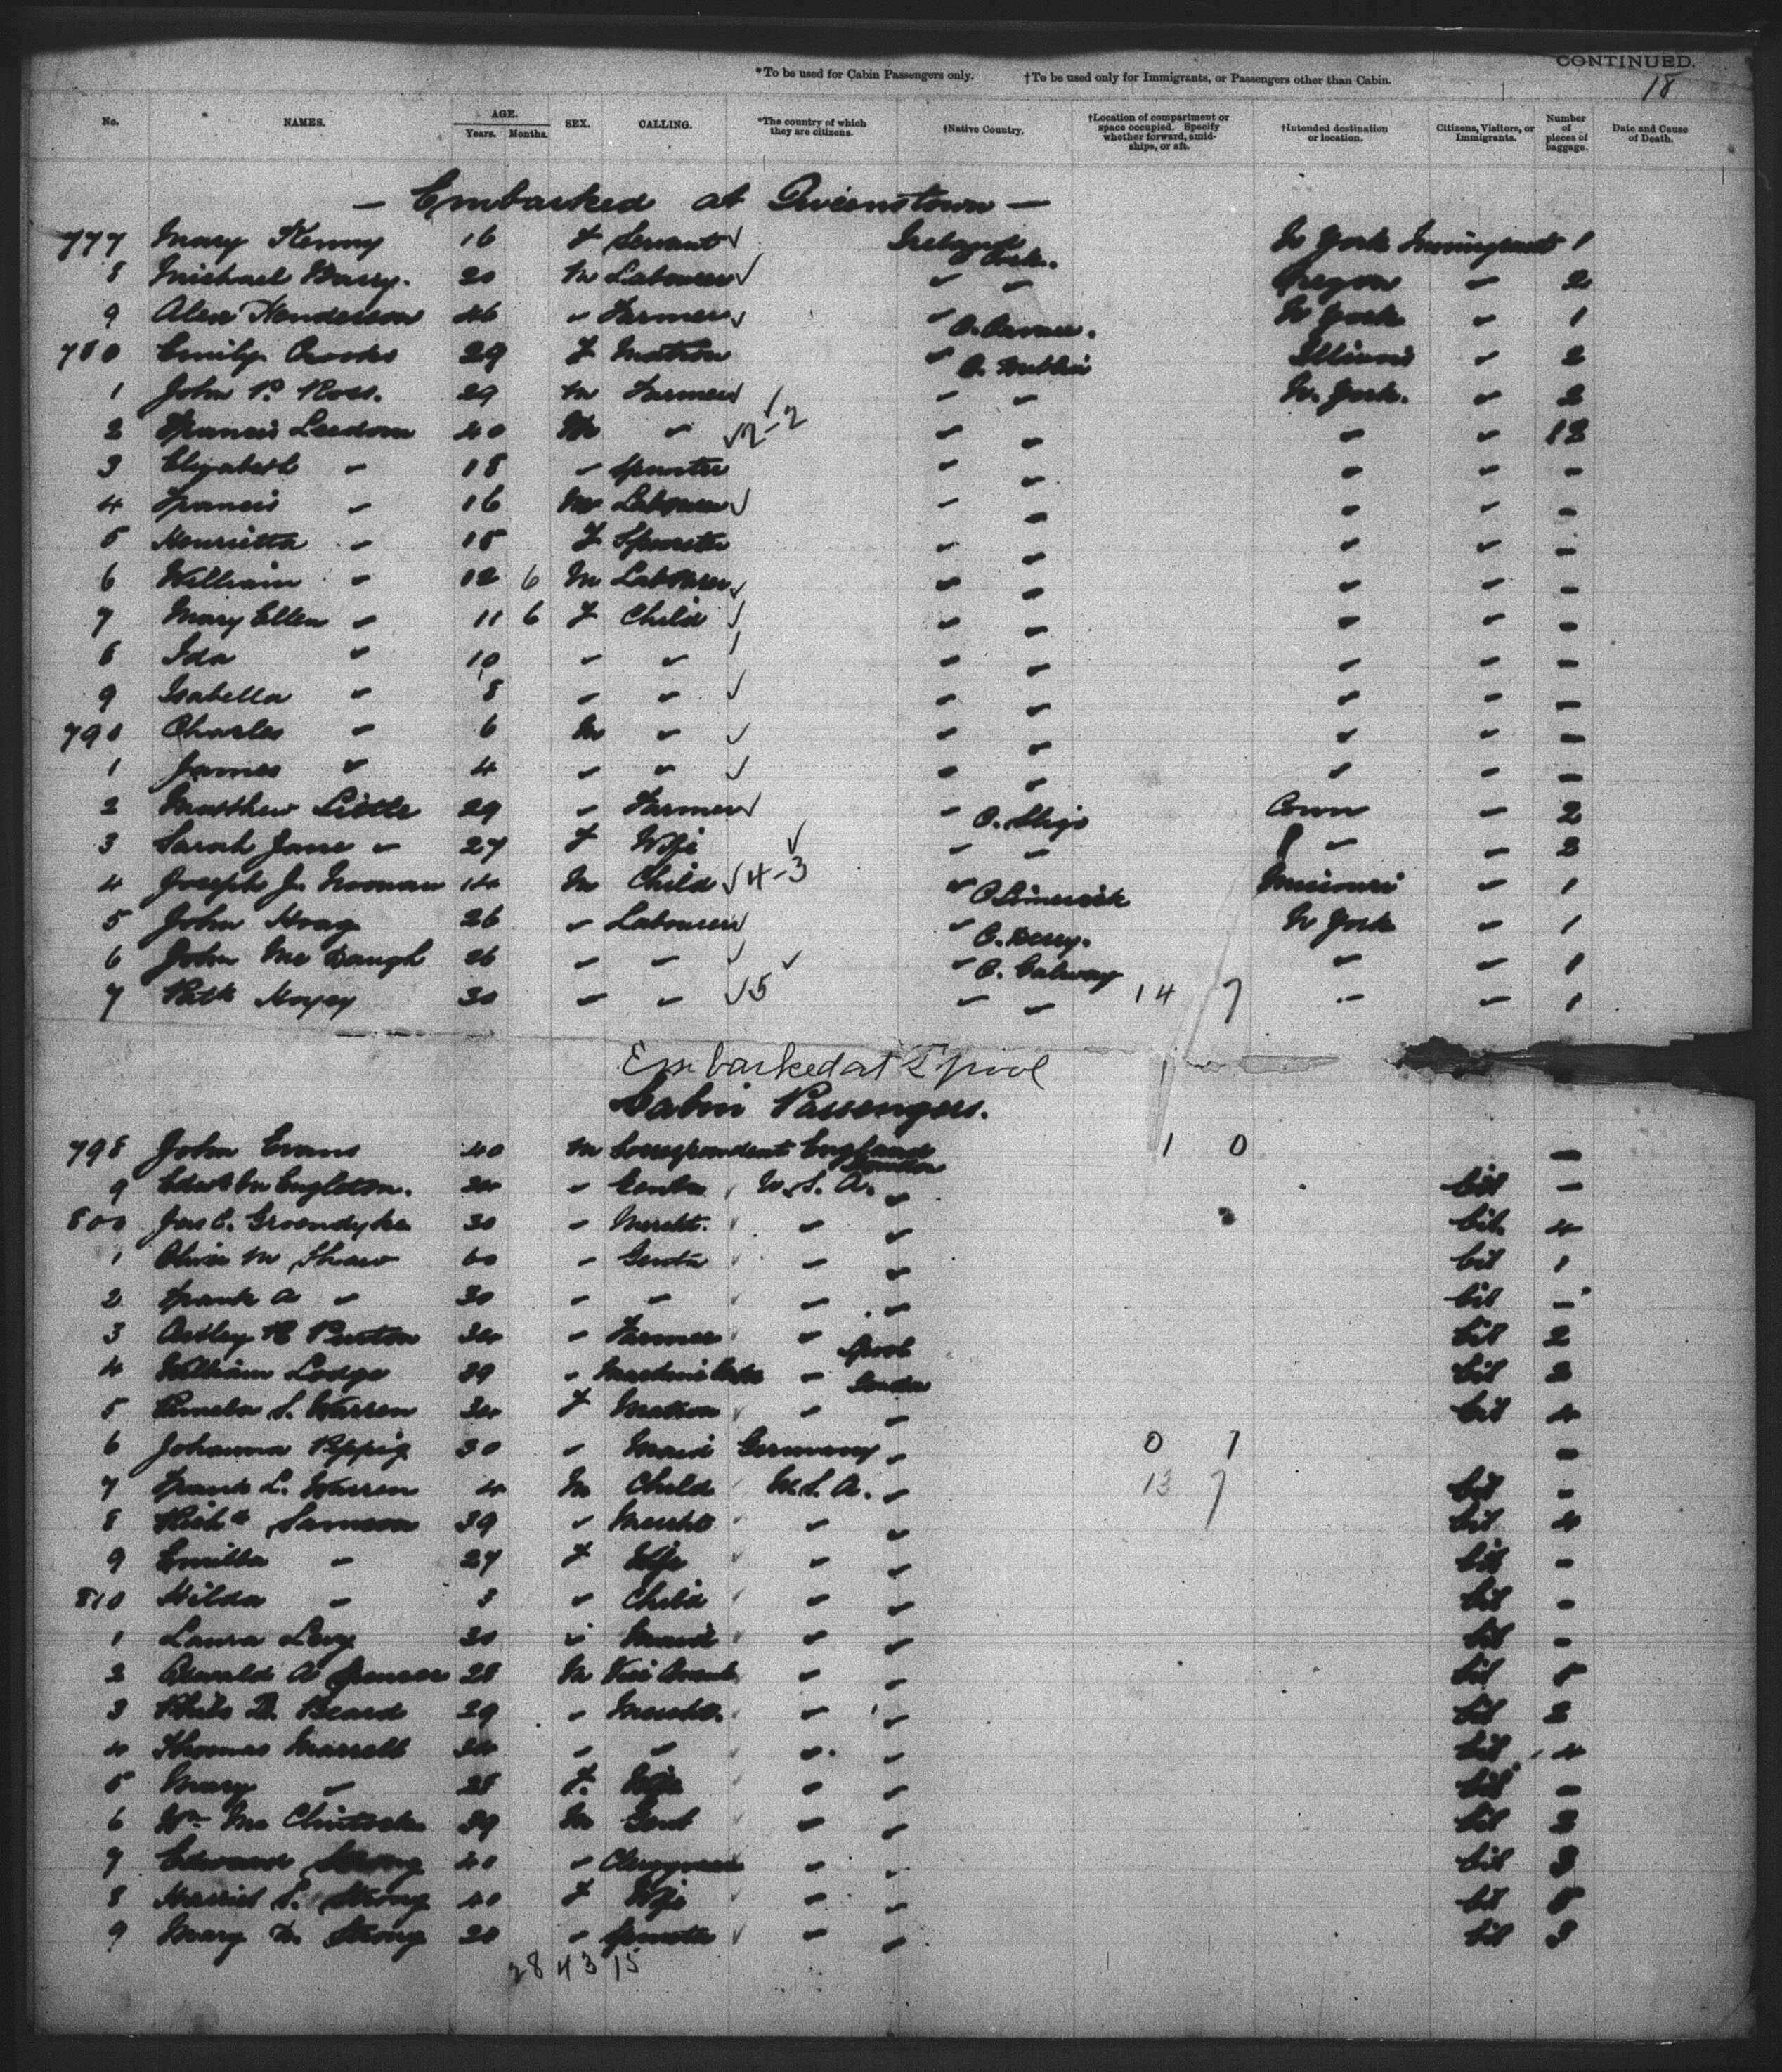 CONTINUED.
18
*To be used for Cabin Passengers only. †To be used only for Immigrants, or Passengers other than Cabin.
No. NAMES. AGE. Years. Months. SEX. CALLING. *The country of which they are citizens. †Native Country. †Location of compartment or space occupied. Specify whether forward, amidships, or aft. †Intended destination or location. Citizens, Visitors, or Immigrants. Number of pieces of baggage. Date and Cause of Death.
— Embarked at Queenstown —
777 Mary Kenny 16 F Servant √ Ireland Cork. N York Immigrant 1
8 Michael Barry. 20 M Labourer √ " " Oregon " 2
9 Alex Henderson 46 " Farmer √ " N York " 1
780 Emily Crooks 29 F Matron " C. Dublin Illinois " 2
1 John P. Ross. 29 M Farmer √ " " N. York. " 2
2 Francis Leedom 40 M " √ 2-2 " " " " 12
3 Elizabeth " 18 " Spinster " " " " -
4 Francis " 16 M Labourer √ " " " " -
5 Henrietta " 15 F Spinster " " " " -
6 William " 12 6 M Labourer √ " " " " -
7 Mary Ellen " 11 6 F Child √ " " " " -
8 Ida " 10 " " √ " " " " -
9 Isabella " 8 " " √ " " " " -
790 Charles " 6 M " √ " " " " -
1 James " 4 " " √ " " " " -
2 Matthew Little 29 " Farmer √ " C. Sligo Conn " 2
3 Sarah Jane " 27 F Wife √ " " " " 2
4 Joseph J. Noonan 14 M Child √ 4-3 " C Limerick Missouri " 1
5 John Hoag 26 " Labourer √ " C. Derry. N York " 1
6 John Mc Gaugh 26 " " √ " C. Galway " " 1
7 Patk 30 " " √ 5 " " 14 7 " " 1
Embarked at L'pool
Cabin Passengers.
798 John Evans 40 M Correspondent England London 1 0 -
9 24 " Gentn U.S.A. " Cit -
800 Jas C. Groendyke 30 " Mercht. " " Cit. 4
1 Oliver M Shaw 60 " Gentn " " Cit 1
2 Frank A " 30 " " " " Cit -
3 Astley 34 " Farmer " L'pool Cit 2
4 William Lodge 39 " " London Cit 2
5 Pamela S. Warren 34 F Matron " " Cit 4
6 Johanna 30 " Maid Germany " 0 1 -
7 Frank L. Warren 4 M Child U.S.A. " 13 7 Cit -
8 Richd Samson 39 " Mercht " " Cit 4
9 Emilla " 27 F Wife " " Cit -
810 Hilda " 3 " Child " " Cit -
1 Laura Levy 30 " Maid " " Cit -
2 A Spencer 28 M " " Cit 5
3 Beard 29 " Mercht. " " Cit 2
4 Thomas Marrett 34 " " " " Cit 4
5 Mary " 28 F. Wife " " Cit -
6 Wm Mc Clintock 39 M Gent " " Cit 2
7 Edward Strong 40 " Clergyman " " Cit 3
8 Harriet S. Strong 40 F Wife " " Cit 5
9 Mary Strong 20 " Spinster " " Cit 3
28 43 15